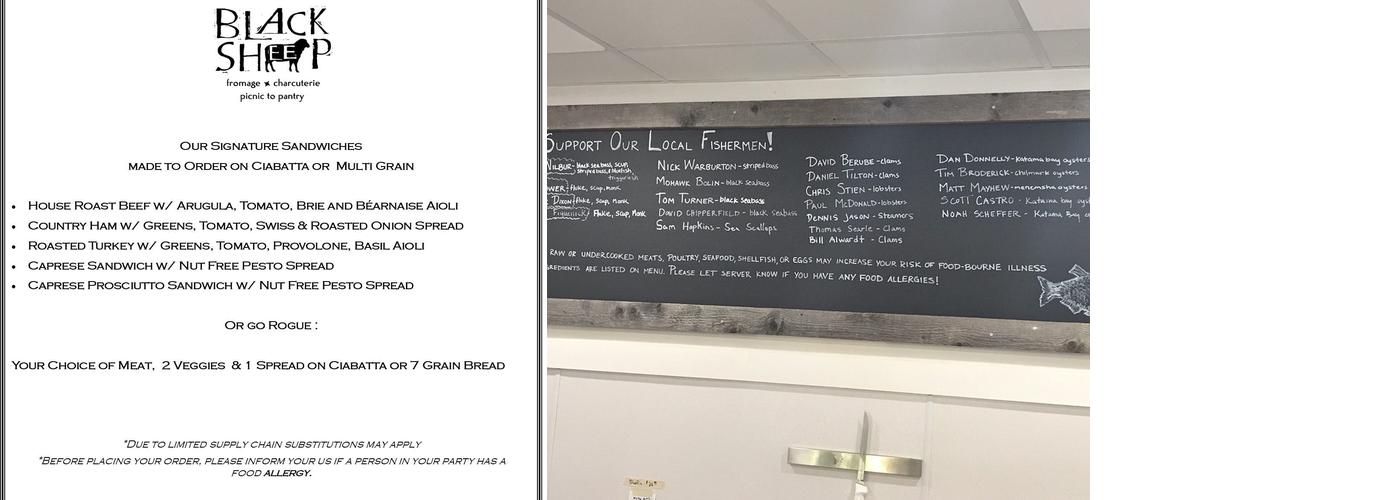 BLACK
SHEEP
fromage × charcuterie
picnic to pantry
Our Signature Sandwiches
made to Order on Ciabatta or Multi Grain
• House Roast Beef w/ Arugula, Tomato, Brie and Béarnaise Aioli
• Country Ham w/ Greens, Tomato, Swiss & Roasted Onion Spread
• Roasted Turkey w/ Greens, Tomato, Provolone, Basil Aioli
• Caprese Sandwich w/ Nut Free Pesto Spread
• Caprese Prosciutto Sandwich w/ Nut Free Pesto Spread
Or go Rogue :
Your Choice of Meat, 2 Veggies & 1 Spread on Ciabatta or 7 Grain Bread
*Due to limited supply chain substitutions may apply
*Before placing your order, please inform your us if a person in your party has a
food allergy.
Support Our Local Fishermen!
Wilbur- black seabass, scup,
striped bass, & bluefish,
triggerfish
ower- fluke, scup, monk
Dixon- fluke, scup, monk
Fluke, Scup, Monk
Nick Warburton - striped bass
Mohawk Bolin - black seabass
Tom Turner - black seabass
David Chipperfield - black seabass
Sam Hopkins - Sea Scallops
David Berube - clams
Daniel Tilton - clams
Chris Stien - lobsters
Paul McDonald - lobsters
Dennis Jason - Steamers
Thomas Searle - Clams
Bill Alwardt - Clams
Dan Donnelly - Katama bay oysters
Tim Broderick - chilmark oysters
Matt Mayhew - menemsha oysters
Scott Castro - Katama bay oyst
Noah Scheffer - Katama Bay
raw or undercooked meats, poultry, seafood, shellfish, or eggs may increase your risk of food-bourne illness
gredients are listed on menu. Please let server know if you have any food allergies!